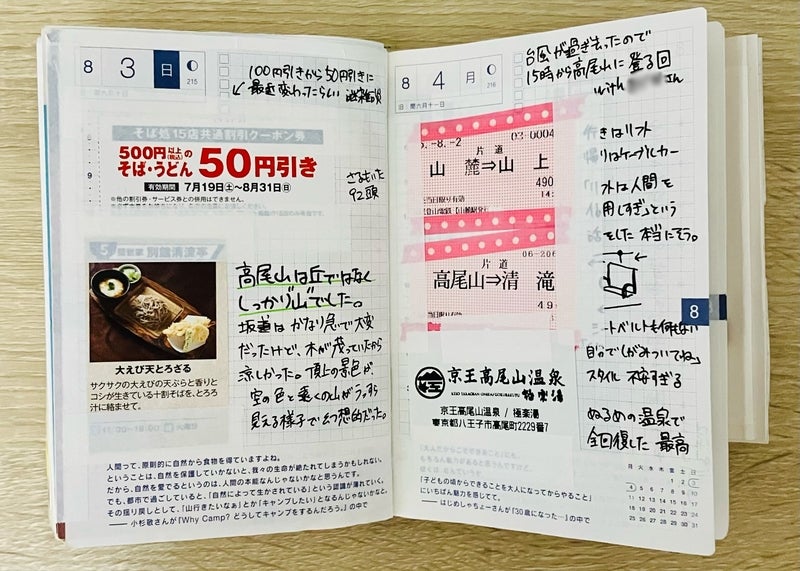 8 3 日
215
100円引きから50円引きに
最近変わったらしい
そば処15店共通割引クーポン券
500円以上(税込)の
そば・うどん 50円引き
有効期間 7月19日(土)〜8月31日(日)
※他の割引券・サービス券との併用はできません。
9
さるもいた
92頭
5
別館清流亭
大えび天とろざる
サクサクの大えびの天ぷらと香りと
コシが生きている十割そばを、とろろ
汁に絡ませて。
高尾山は丘ではなく
しっかり"山"でした。
坂道はかなり急で大変
だったけど、木が茂っていたから
涼しかった。頂上の景色が
空の色と遠くの山がうっすら
見える様子で幻想的だった。
人間って、原則的に自然から食物を得ていますよね。
ということは、自然を保護していかないと、我々の生命が絶たれてしまうかもしれない。
だから、自然を愛でるというのは、人間の本能なんじゃないかなと思うんです。
でも、都市で過ごしていると、「自然によって生かされている」という認識が薄れていく。
その揺り戻しとして、「山行きたいなぁ」とか「キャンプしたい」となるんじゃないかなと。
——小杉敬さんが『Why Camp? どうしてキャンプをするんだろう。』の中で
8 4 月
216
旧 閏六月十一日
台風が過ぎ去ったので
15時から高尾山に登る回
with さん
5.-8.-2
03-0004
片道
山麓⇒山上
490
14:
06-206
片道
高尾山⇒清滝
49
行きはリフト
帰りはケーブルカー
リフトは人間を
信用しすぎ」という
をした 本当にそう。
シートベルトも何もない
自分で「しがみついてね」
スタイル 不安すぎる
ぬるめの温泉で
全回復した 最高
8
京王高尾山温泉
極楽湯
KEIO TAKAOSAN ONSEN/GOKURAKUYU
京王高尾山温泉 / 極楽湯
東京都八王子市高尾町2229番7
「子どもの頃からできることを大人になってからやること」
にいちばん魅力を感じてて。
——はじめしゃちょーさんが『30歳になった…』の中で
月 火 水 木 金 土 日
1 2 3
4 5 6 7 8 9 10
11 12 13 14 15 16 17
18 19 20 21 22 23 24
25 26 27 28 29 30 31